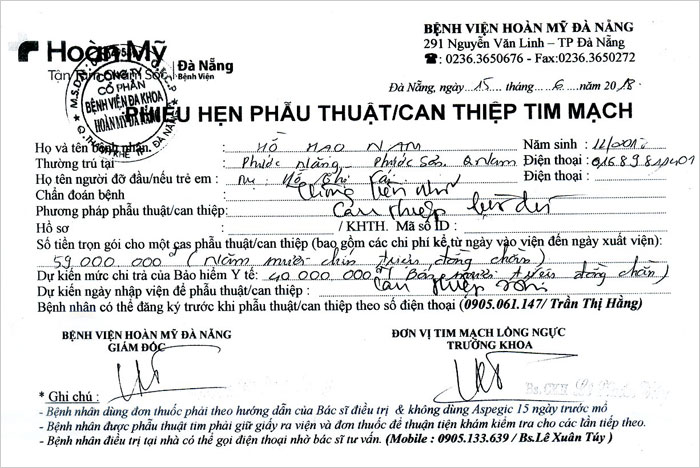 BỆNH VIỆN HOÀN MỸ ĐÀ NẴNG
291 Nguyễn Văn Linh – TP Đà Nẵng
☎: 0236.3650676 - Fax:0236.3650272
Hoàn Mỹ
Đà Nẵng
Bệnh Viện
CÔNG TY
CỔ PHẦN
BỆNH VIỆN ĐA KHOA
HOÀN MỸ ĐÀ NẴNG
Đà Nẵng, ngày 15 tháng 6 năm 2018
PHIẾU HẸN PHẪU THUẬT/CAN THIỆP TIM MẠCH
Họ và tên bệnh nhân: HỒ HẠO NAM Năm sinh:
Thường trú tại : Phước Năng - Phước Sơn QNam Điện thoại:
Họ tên người đỡ đầu/nếu trẻ em : Hồ Thị
Chẩn đoán bệnh : Thông liên nhĩ
Phương pháp phẫu thuật/can thiệp: Can thiệp bít dù
Hồ sơ : / KHTH. Mã số ID :
Số tiền trọn gói cho một gas phẫu thuật/can thiệp (bao gồm các chi phí kể từ ngày vào viện đến ngày xuất viện):
59.000.000đ (Năm mươi chín triệu đồng chẵn)
Dự kiến mức chi trả của Bảo hiểm Y tế: 40.000.000đ (Bốn mươi triệu đồng chẵn)
Dự kiến ngày nhập viện để phẫu thuật/can thiệp : Can thiệp
Bệnh nhân có thể đăng ký trước khi phẫu thuật/can thiệp theo số điện thoại (0905.061.147/ Trần Thị Hằng)
BỆNH VIỆN HOÀN MỸ ĐÀ NẴNG ĐƠN VỊ TIM MẠCH LỒNG NGỰC
GIÁM ĐỐC TRƯỞNG KHOA
* Ghi chú :
- Bệnh nhân dùng đơn thuốc phải theo hướng dẫn của Bác sĩ điều trị & không dùng Aspegic 15 ngày trước mổ
- Bệnh nhân được phẫu thuật tim phải giữ giấy ra viện và đơn thuốc để thuận tiện khám kiểm tra cho các lần tiếp theo.
- Bệnh nhân điều trị tại nhà có thể gọi điện thoại nhờ bác sĩ tư vấn. (Mobile : 0905.133.639 / Bs.Lê Xuân Túy )